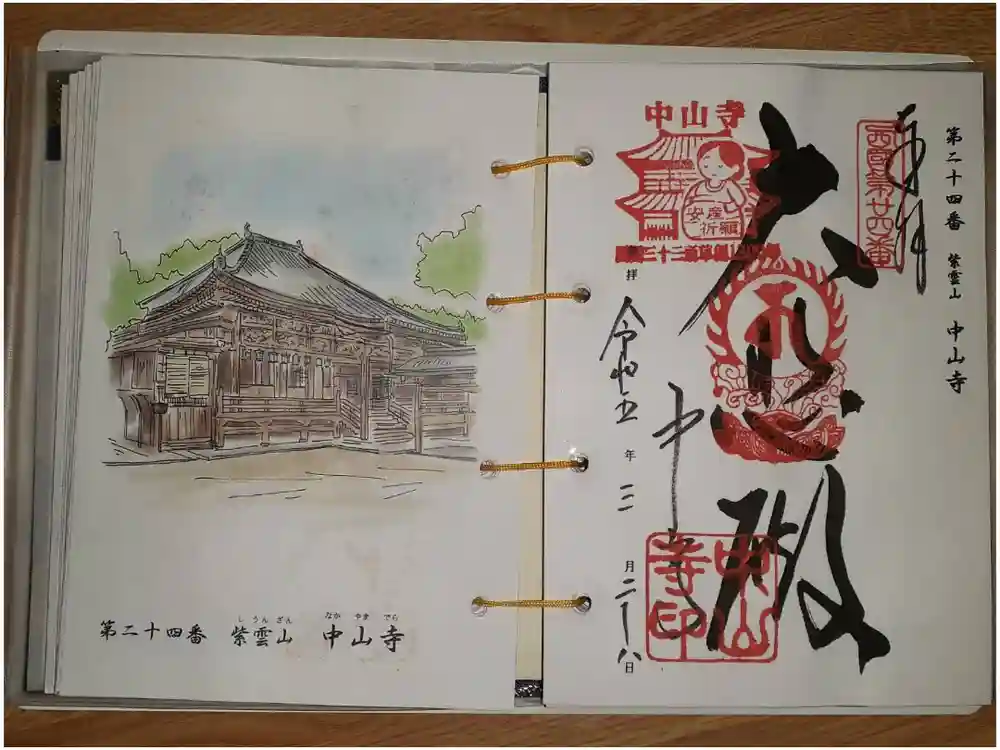 第二十四番 紫雲山 中山寺
奉拝
西國第廿四番
大悲殿
中山寺
安産
祈願
拝 令和五年三月二十八日
中山寺
中山寺印
しうんざん なかやまでら
第二十四番 紫雲山 中山寺